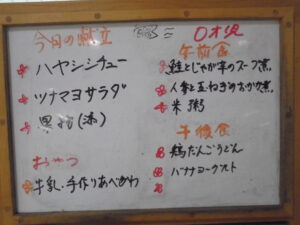 今日の献立
ハヤシシチュー
ツナマヨサラダ
果物(添)
おやつ
牛乳・手作りあべかわ
0才児
午前食
鮭とじゃが芋のスープ煮
人参と玉ねぎのおかか煮
米粥
午後食
鶏だんごうどん
バナナヨーグルト